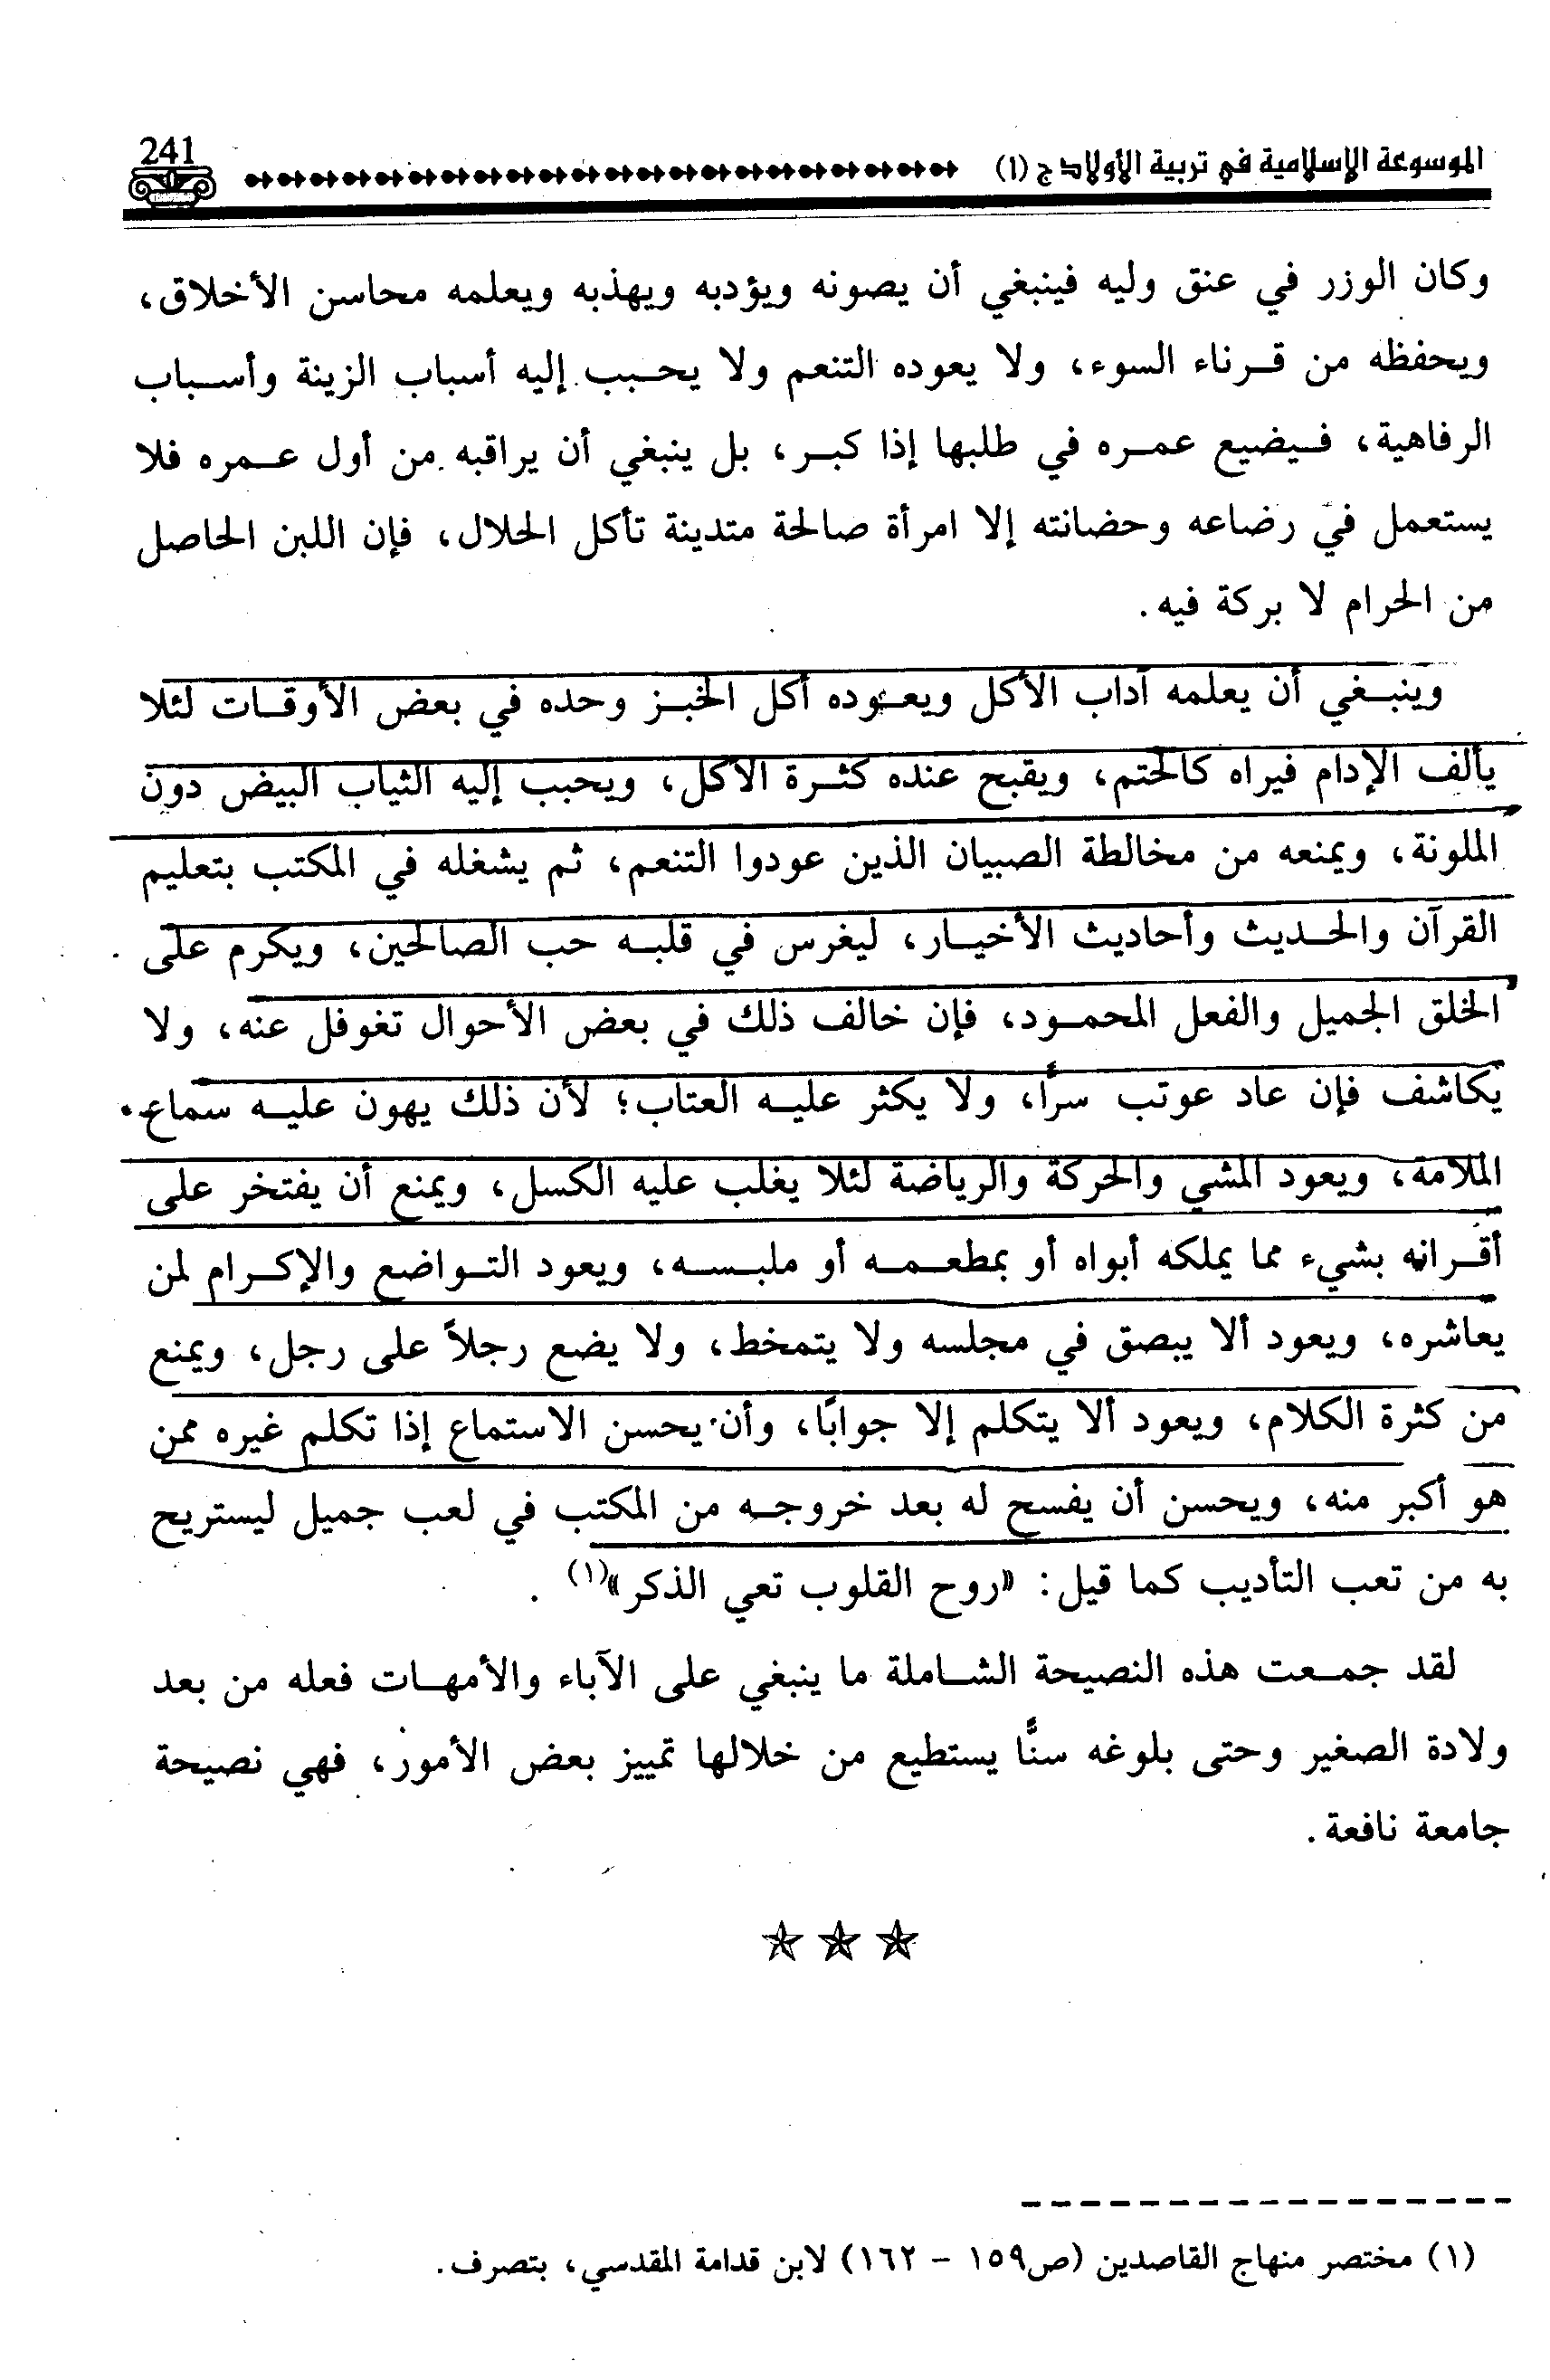 الموسوعة الإسلامية في تربية الأولاد ج (١)
241
وكان الوزر في عنق وليه فينبغي أن يصونه ويؤدبه ويهذبه ويعلمه محاسن الأخلاق،
ويحفظه من قرناء السوء، ولا يعوده التنعم ولا يحبب إليه أسباب الزينة وأسباب
الرفاهية، فيضيع عمره في طلبها إذا كبر، بل ينبغي أن يراقبه من أول عمره فلا
يستعمل في رضاعه وحضانته إلا امرأة صالحة متدينة تأكل الحلال، فإن اللبن الحاصل
من الحرام لا بركة فيه.
وينبغي أن يعلمه آداب الأكل ويعوده أكل الخبز وحده في بعض الأوقات لئلا
يألف الإدام فيراه كالحتم، ويقبح عنده كثرة الأكل، ويحبب إليه الثياب البيض دون
الملونة، ويمنعه من مخالطة الصبيان الذين عودوا التنعم، ثم يشغله في المكتب بتعليم
القرآن والحديث وأحاديث الأخيار، ليغرس في قلبه حب الصالحين، ويكرم على
الخلق الجميل والفعل المحمود، فإن خالف ذلك في بعض الأحوال تغوفل عنه، ولا
يكاشف فإن عاد عوتب سرًّا، ولا يكثر عليه العتاب؛ لأن ذلك يهون عليه سماع
الملامة، ويعود المشي والحركة والرياضة لئلا يغلب عليه الكسل، ويمنع أن يفتخر على
أقرانه بشيء مما يملكه أبواه أو بمطعمه أو ملبسه، ويعود التواضع والإكرام لمن
يعاشره، ويعود ألا يبصق في مجلسه ولا يتمخط، ولا يضع رجلاً على رجل، ويمنع
من كثرة الكلام، ويعود ألا يتكلم إلا جوابًا، وأن يحسن الاستماع إذا تكلم غيره ممن
هو أكبر منه، ويحسن أن يفسح له بعد خروجه من المكتب في لعب جميل ليستريح
به من تعب التأديب كما قيل: «روح القلوب تعي الذكر»(١) .
لقد جمعت هذه النصيحة الشاملة ما ينبغي على الآباء والأمهات فعله من بعد
ولادة الصغير وحتى بلوغه سنًّا يستطيع من خلالها تمييز بعض الأمور، فهي نصيحة
جامعة نافعة.
(١) مختصر منهاج القاصدين (ص١٥٩ - ١٦٢) لابن قدامة المقدسي، بتصرف.